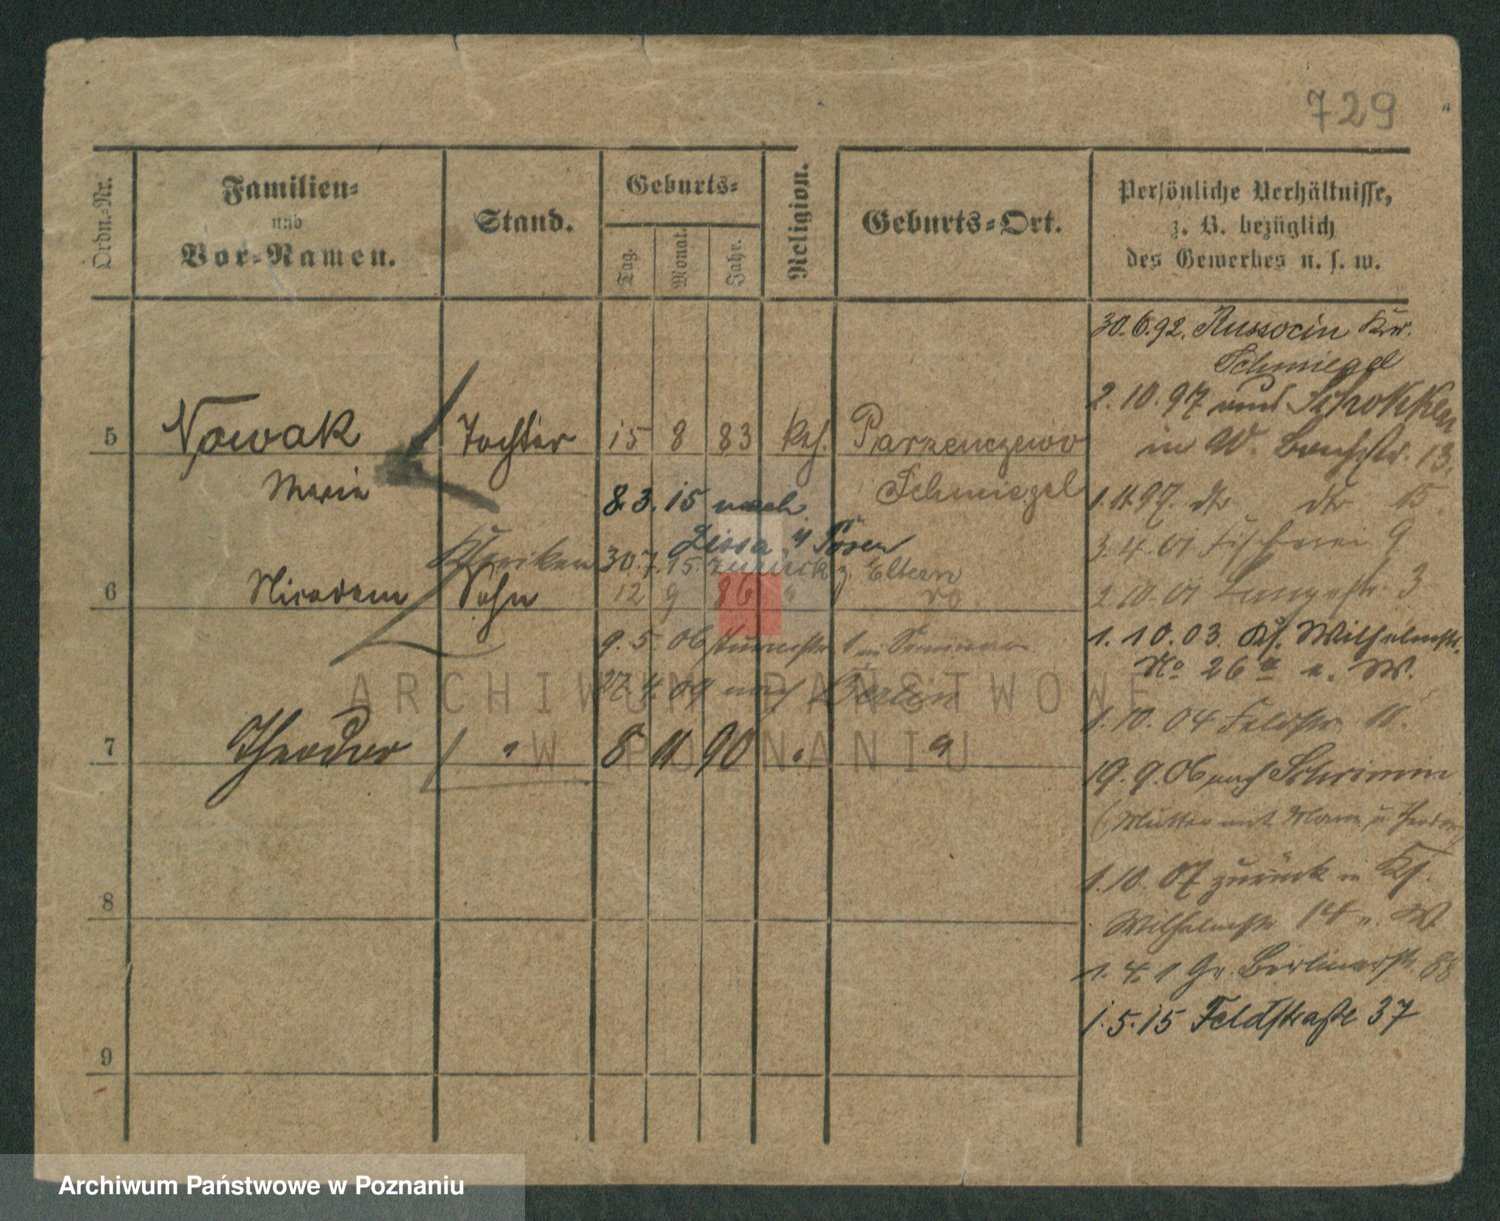 729
Ordn.-Nr.
Familien-
und
Vor-Namen.
Stand.
Geburts-
Tag.
Monat.
Jahr.
Religion.
Geburts-Ort.
Persönliche Verhältnisse,
z. B. bezüglich
des Gewerbes u. s. w.
30.6.92. Russocin Kr.
Schmiegel
2.10.97 Schokken
5 Nowak Tochter 15 8 83 kth. Parzenczewo
in W. 13.
Marie Schmiegel
8.3.15 nach
1.11.97. dto dto 15.
Lissa i/ Posen
30.7.15 zurück z. Eltern
3.4.01 Fischerei 9
6 Nicodem Sohn 12 9 86 " do.
2.10.01 Langestr. 3
9.5.06 Turmstr. 1 Seminar
1.10.03. Kf. Wilhelmstr.
No 26a W.
27.4.09 nach Berlin
1.10.04 Feldstr. 11.
7 Theodor " 8 11 90 " "
19.9.06 nach Schrimm
(Mutter mit Marie u Theodor
1.10.07 zurück in Kf.
8
Wilhelmstr 14 W
1.4. Gr. Berlinerstr. 88
1.5.15 Feldstraße 37
9
ARCHIWUM PAŃSTWOWE
W POZNANIU
Archiwum Państwowe w Poznaniu